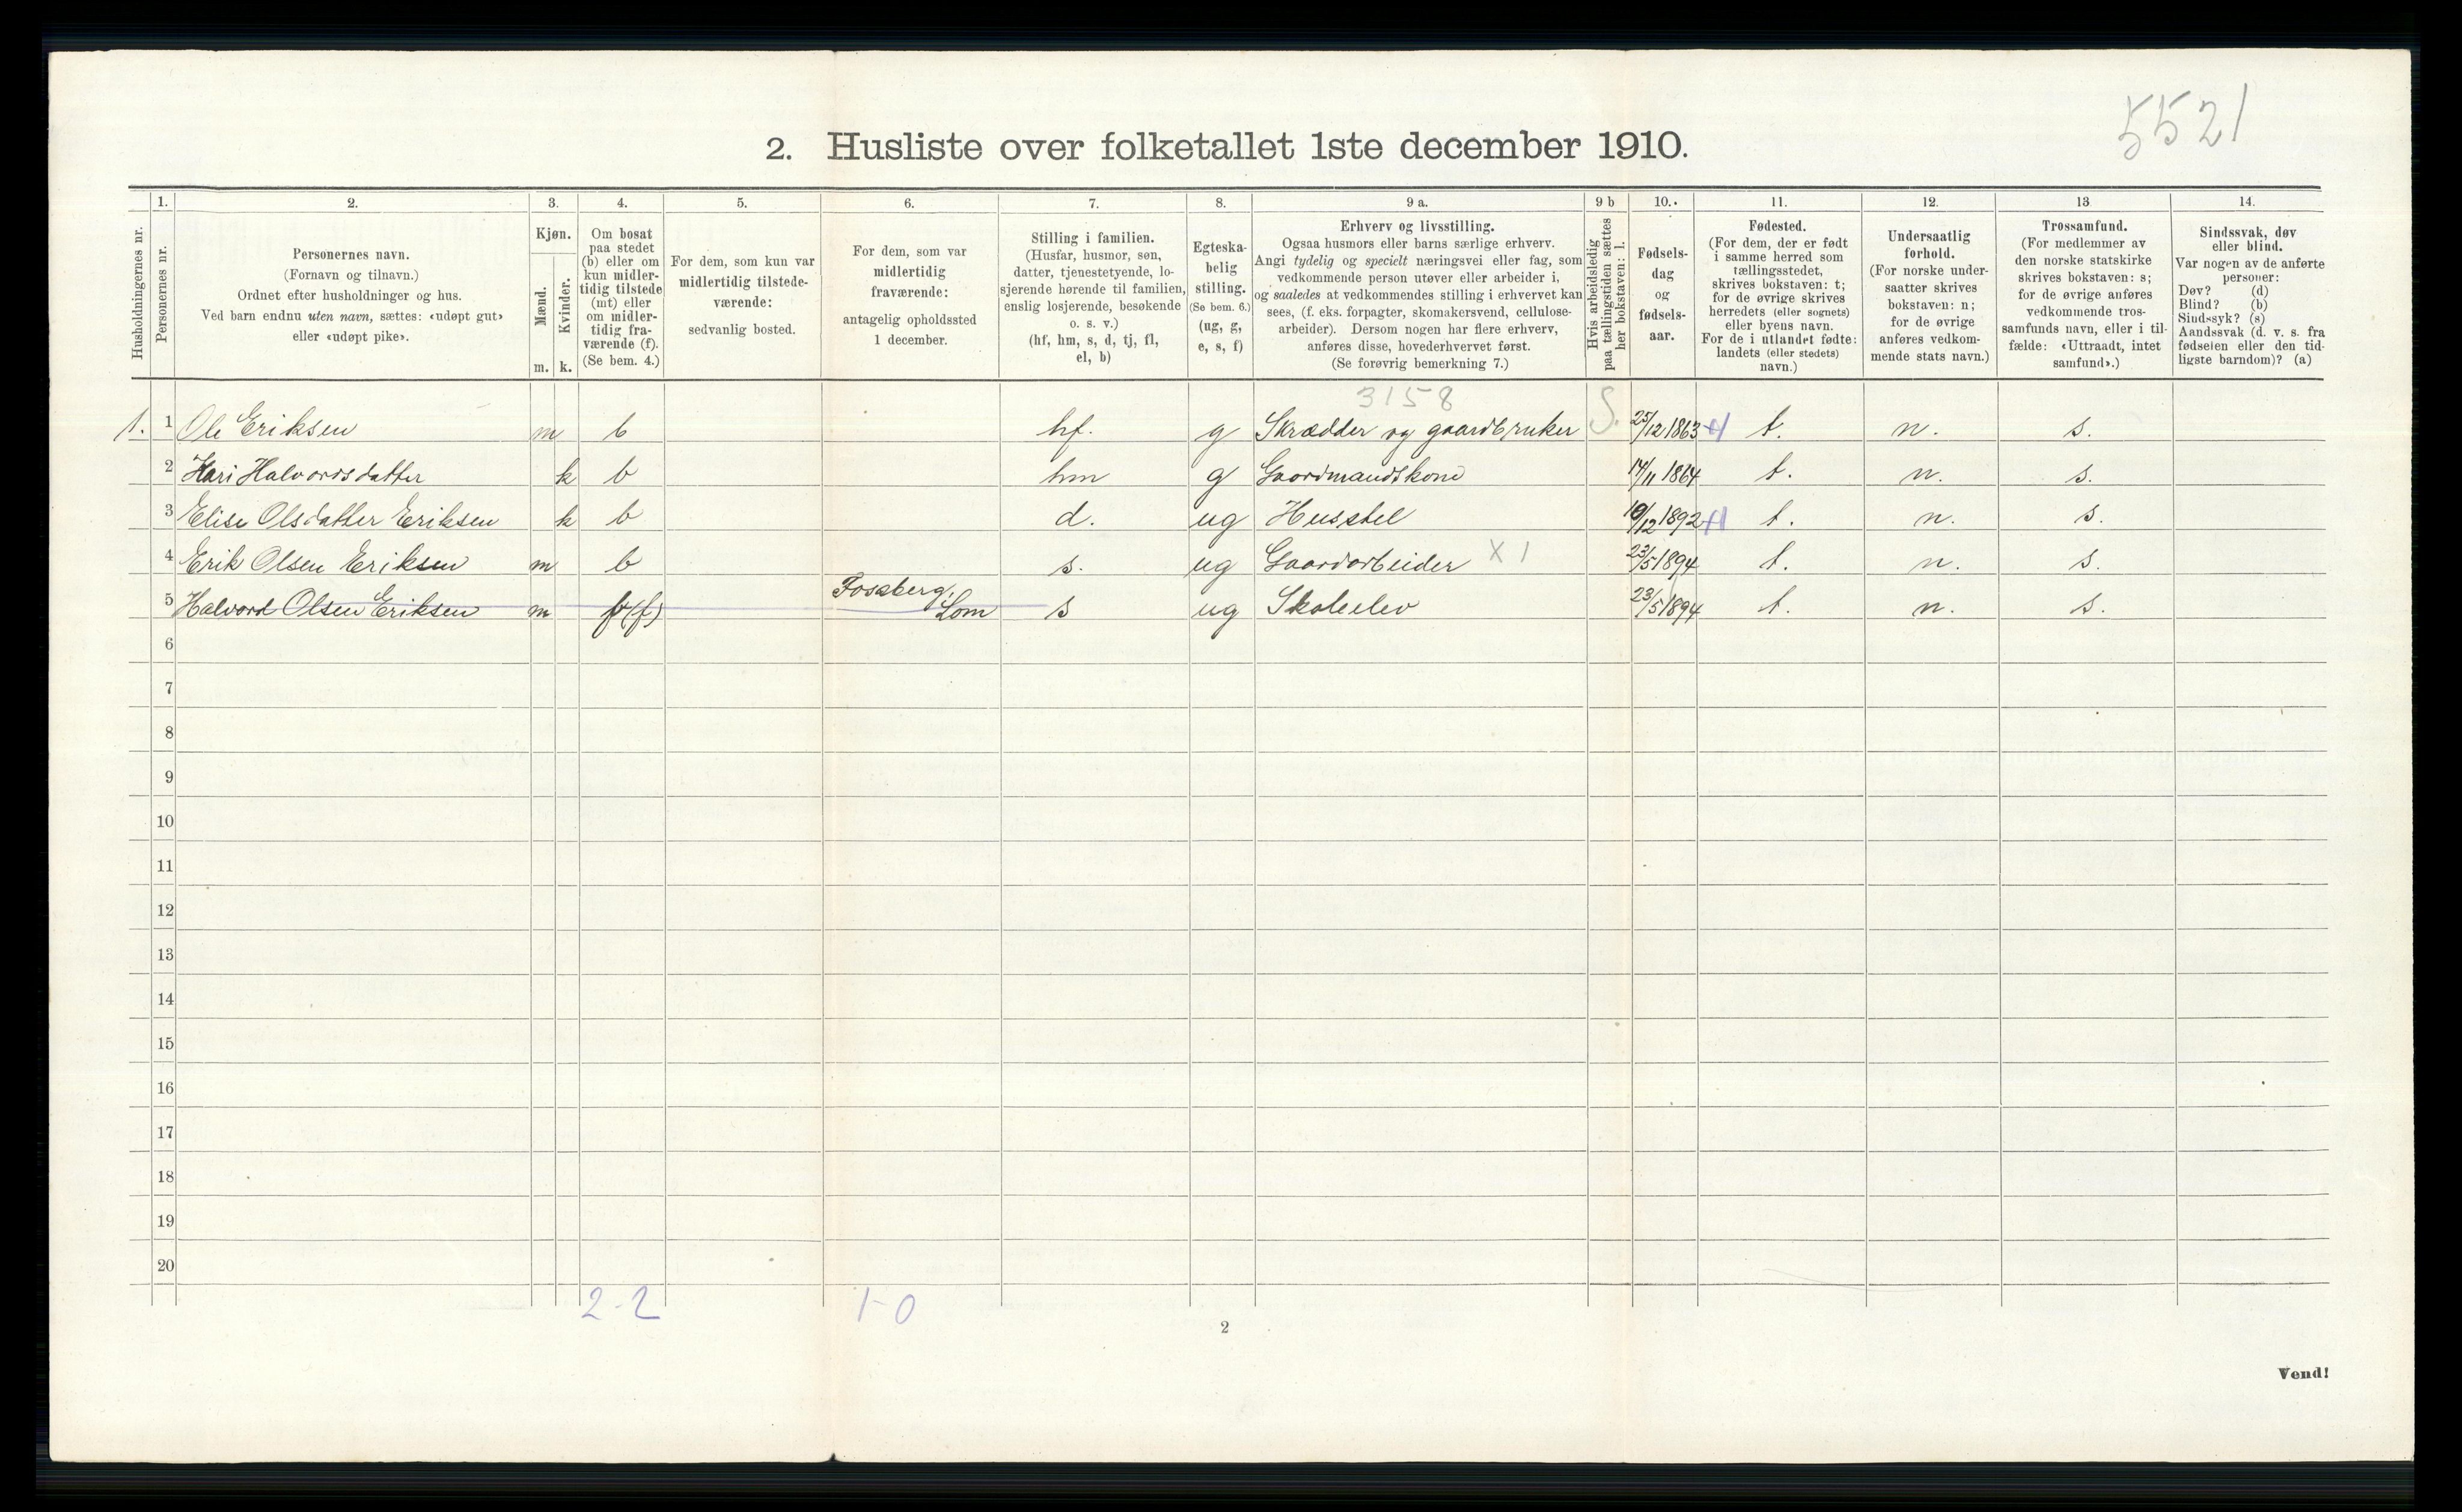 5521
2. Husliste over folketallet 1ste december 1910.
Husholdningernes nr.
1.
Personernes nr.
2.
Personernes navn.
(Fornavn og tilnavn.)
Ordnet efter husholdninger og hus.
Ved barn endnu uten navn, sættes: «udøpt gut»
eller «udøpt pike».
3.
Kjøn.
Mænd.
Kvinder.
m. k.
4.
Om bosat
paa stedet
(b) eller om
kun midler-
tidig tilstede
(mt) eller
om midler-
tidig fra-
værende (f).
(Se bem. 4.)
5.
For dem, som kun var
midlertidig tilstede-
værende:
sedvanlig bosted.
6.
For dem, som var
midlertidig
fraværende:
antagelig opholdssted
1 december.
7.
Stilling i familien.
(Husfar, husmor, søn,
datter, tjenestetyende, lo-
sjerende hørende til familien,
enslig losjerende, besøkende
o. s. v.)
(hf, hm, s, d, tj, fl,
el, b)
8.
Egteska-
belig
stilling.
(Se bem. 6.)
(ug, g,
e, s, f)
9 a.
Erhverv og livsstilling.
Ogsaa husmors eller barns særlige erhverv.
Angi tydelig og specielt næringsvei eller fag, som
vedkommende person utøver eller arbeider i,
og saaledes at vedkommendes stilling i erhvervet kan
sees, (f. eks. forpagter, skomakersvend, cellulose-
arbeider). Dersom nogen har flere erhverv,
anføres disse, hovederhvervet først.
(Se forøvrig bemerkning 7.)
9 b
Hvis arbeidsledig
paa tællingstiden sættes
her bokstaven: l.
10.
Fødsels-
dag
og
fødsels-
aar.
11.
Fødested.
(For dem, der er født
i samme herred som
tællingsstedet,
skrives bokstaven: t;
for de øvrige skrives
herredets (eller sognets)
eller byens navn.
For de i utlandet fødte:
landets (eller stedets)
navn.)
12.
Undersaatlig
forhold.
(For norske under-
saatter skrives
bokstaven: n;
for de øvrige
anføres vedkom-
mende stats navn.)
13
Trossamfund.
(For medlemmer av
den norske statskirke
skrives bokstaven: s;
for de øvrige anføres
vedkommende tros-
samfunds navn, eller i til-
fælde: «Uttraadt, intet
samfund».)
14.
Sindssvak, døv
eller blind.
Var nogen av de anførte
personer:
Døv? (d)
Blind? (b)
Sindssyk? (s)
Aandssvak (d. v. s. fra
fødselen eller den tid-
ligste barndom)? (a)
3158
1. 1 Ole Eriksen m b hf. g Skrædder og gaardbruker S. 25/12 1863 t. n. s.
2 Kari Halvordsdatter k b hm g Gaardmandskone 14/11 1864 t. n. s.
3 Elise Olsdatter Eriksen k b d. ug Husstel 10/12 1892 t. n. s.
4 Erik Olsen Eriksen m b s. ug Gaardarbeider X 1 23/5 1894 t. n. s.
5 Halvord Olsen Eriksen m (f) Fossberg, Lom s ug Skoleelev 23/5 1894 t. n. s.
6
7
8
9
10
11
12
13
14
15
16
17
18
19
20
2-2 1-0
2
Vend!